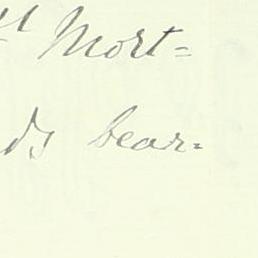 Mort=
ds bear=